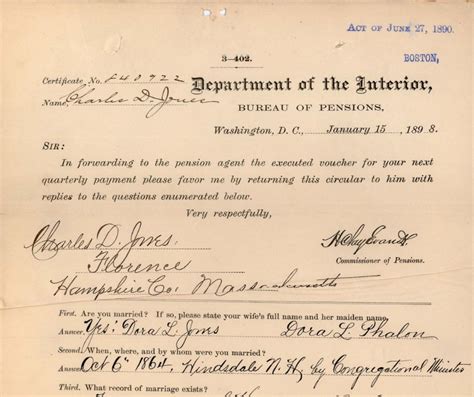 ACT OF JUNE 27, 1890.
3—402.
BOSTON,
Certificate No. 840922
Department of the Interior,
Name, Charles D. Jones
BUREAU OF PENSIONS,
Washington, D. C., January 15, 1898.
SIR:
In forwarding to the pension agent the executed voucher for your next
quarterly payment please favor me by returning this circular to him with
replies to the questions enumerated below.
Very respectfully,
Charles D. Jones,
H Clay Evans
Florence
Commissioner of Pensions.
Hampshire Co: Massachusetts
First. Are you married? If so, please state your wife's full name and her maiden name.
Answer. Yes: Dora L. Jones Dora L Phalon
Second. When, where, and by whom were you married?
Answer. Oct 6th 1864, Hindsdale N. H, by Congregational Minister
Third. What record of marriage exists?